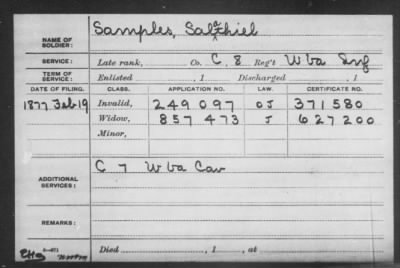 NAME OF SOLDIER: Samples, Salathiel
SERVICE: Late rank, Co. C. 8 Reg't W Va Inf
TERM OF SERVICE: Enlisted , 1 Discharged , 1
DATE OF FILING. CLASS. APPLICATION NO. LAW. CERTIFICATE NO.
1877 Feb 19 Invalid, 249 097 O J 371 580
Widow, 857 473 J 627 200
Minor,
ADDITIONAL SERVICES: C 7 W Va Cav
REMARKS:
Died , 1 , at